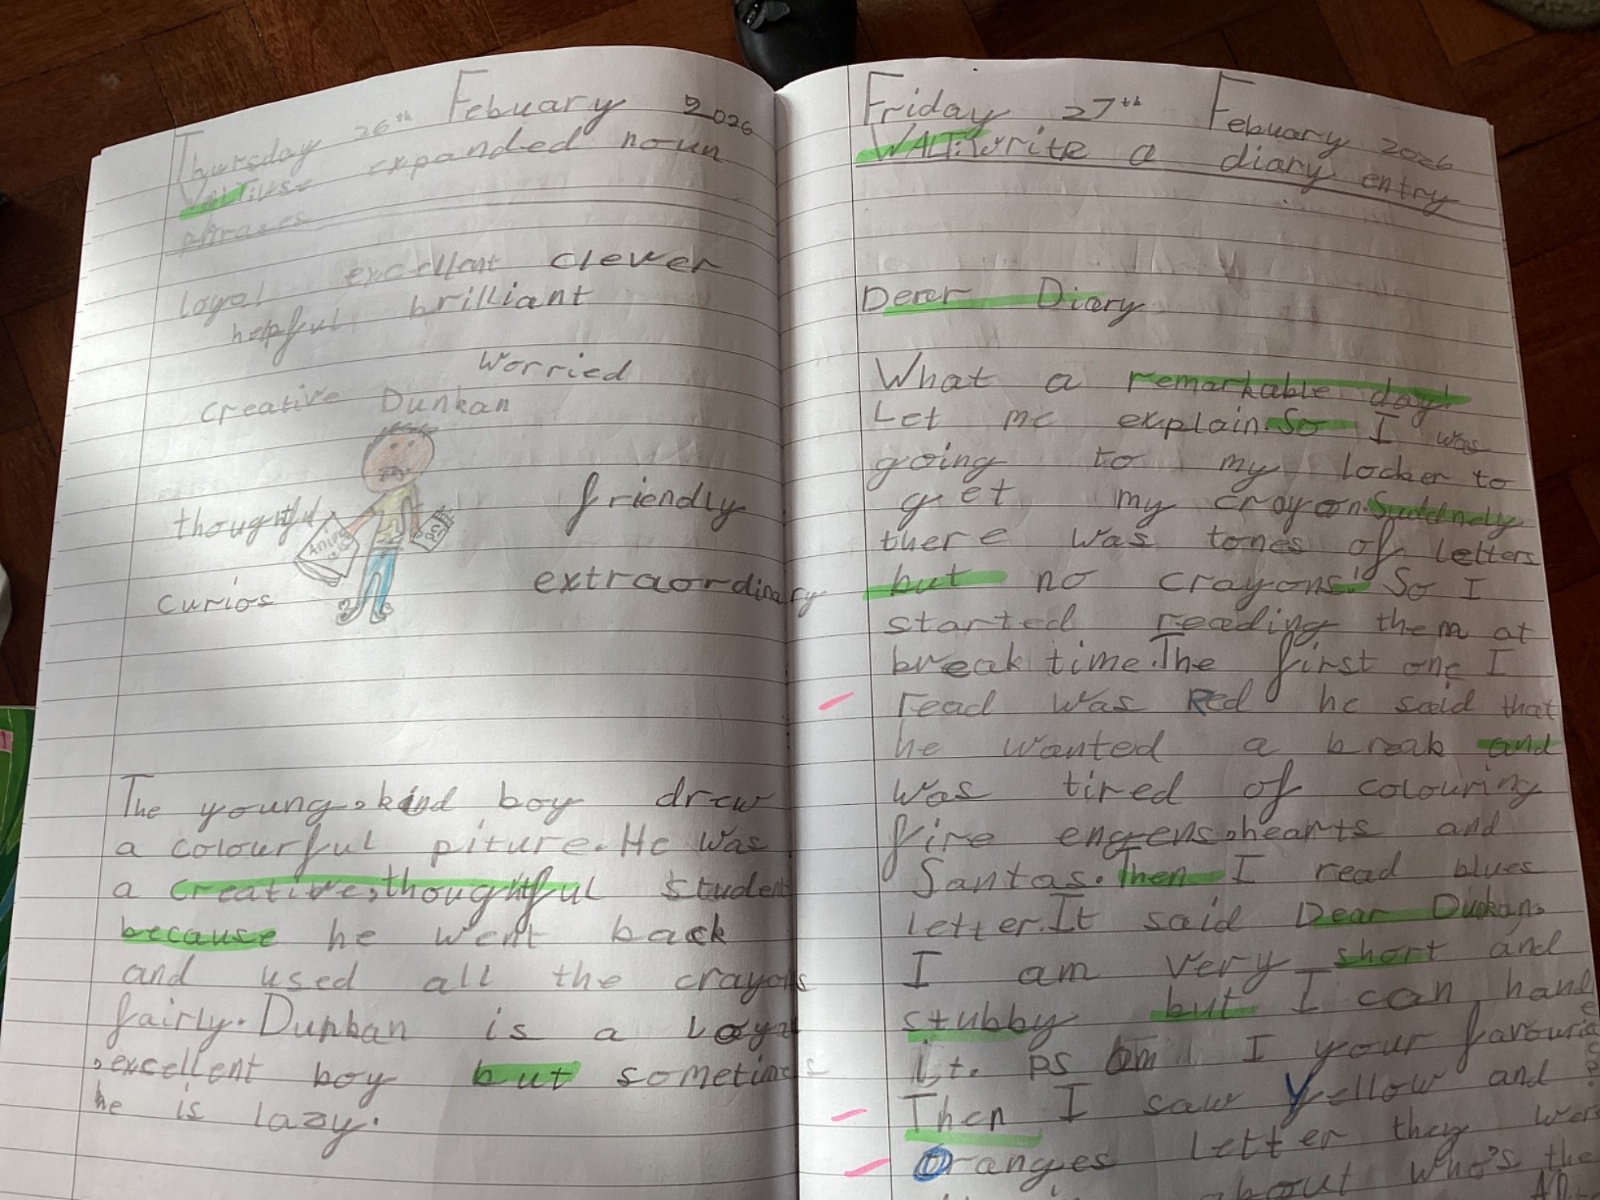 Thursday 26th Febuary 2026
WALT: use expanded noun
phrases
loyal excellent clever
helpful brilliant
worried
creative Dunkan
thoughtful friendly
curios extraordinary
The young, kind boy drew
a colourful piture. He was
a creative, thoughtful student
because he went back
and used all the crayons
fairly. Dunkan is a loyal
, excellent boy but sometimes
he is lazy.
Friday 27th Febuary 2026
WALT: write a diary entry
Dear Diary
What a remarkable day!
Let me explain. So I was
going to my locker to
get my crayon. Suddendly
there was tones of letters
but no crayons! So I
started reading them at
break time. The first one I
read was Red he said that
he wanted a break and
was tired of colouring
fire engrens, hearts and
Santas. Then I read blues
letter. It said Dear Dunkan,
I am very short and
stubby but I can handle
it. ps am I your favourite
Then I saw Yellow and
Oranges letter they were
about who's the